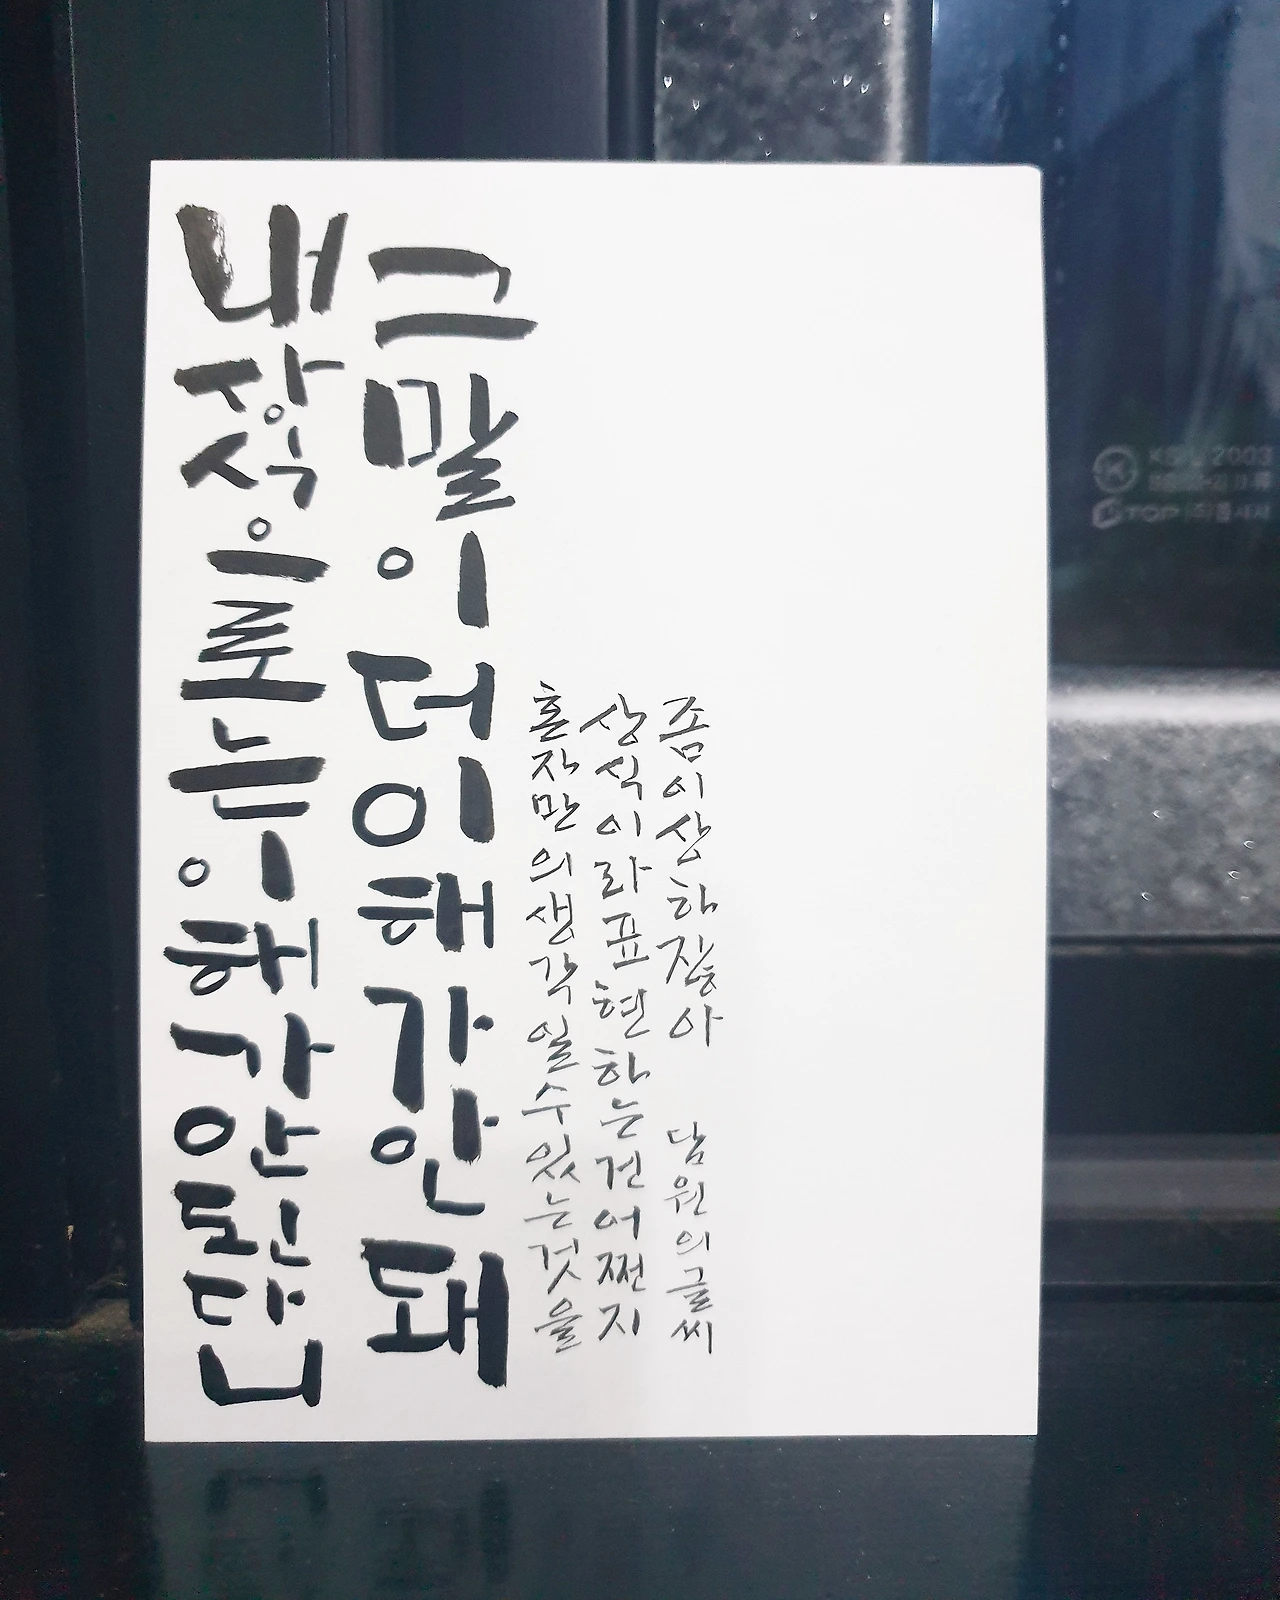 내상식으로는이해가안된다니
그말이더이해가안돼
혼자만의생각일수있는것을
상식이라표현하는건어쩐지
좀이상하잖아
담원의글씨
2003